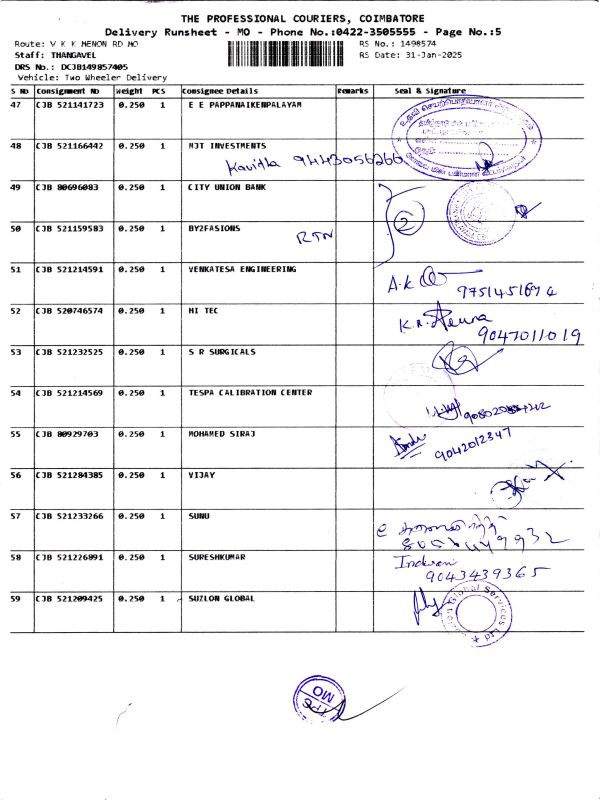 THE PROFESSIONAL COURIERS, COIMBATORE
Delivery Runsheet - MO - Phone No.:0422-3505555 - Page No.:5
Route: V K K MENON RD MO
RS No.: 1498574
Staff: THANGAVEL
RS Date: 31-Jan-2025
DRS No.: DCJB149857405
Vehicle: Two Wheeler Delivery
S No Consignment No Weight PCS Consignee Details Remarks Seal & Signature
47 CJB 521141723 0.250 1 E E PAPPANAIKENPALAYAM
48 CJB 521166442 0.250 1 MJT INVESTMENTS
Kavitha 9443056266
49 CJB 80696083 0.250 1 CITY UNION BANK
2
50 CJB 521159583 0.250 1 BY2FASIONS
RTN
51 CJB 521214591 0.250 1 VENKATESA ENGINEERING
A.K
52 CJB 520746574 0.250 1 HI TEC
K.R.
9047011019
53 CJB 521232525 0.250 1 S R SURGICALS
54 CJB 521214569 0.250 1 TESPA CALIBRATION CENTER
55 CJB 80929703 0.250 1 MOHAMED SIRAJ
9042012347
56 CJB 521284385 0.250 1 VIJAY
57 CJB 521233266 0.250 1 SUNU
58 CJB 521226891 0.250 1 SURESHKUMAR
9043439365
59 CJB 521209425 0.250 1 SUZLON GLOBAL
Global Services
Ltd
TPC
MO